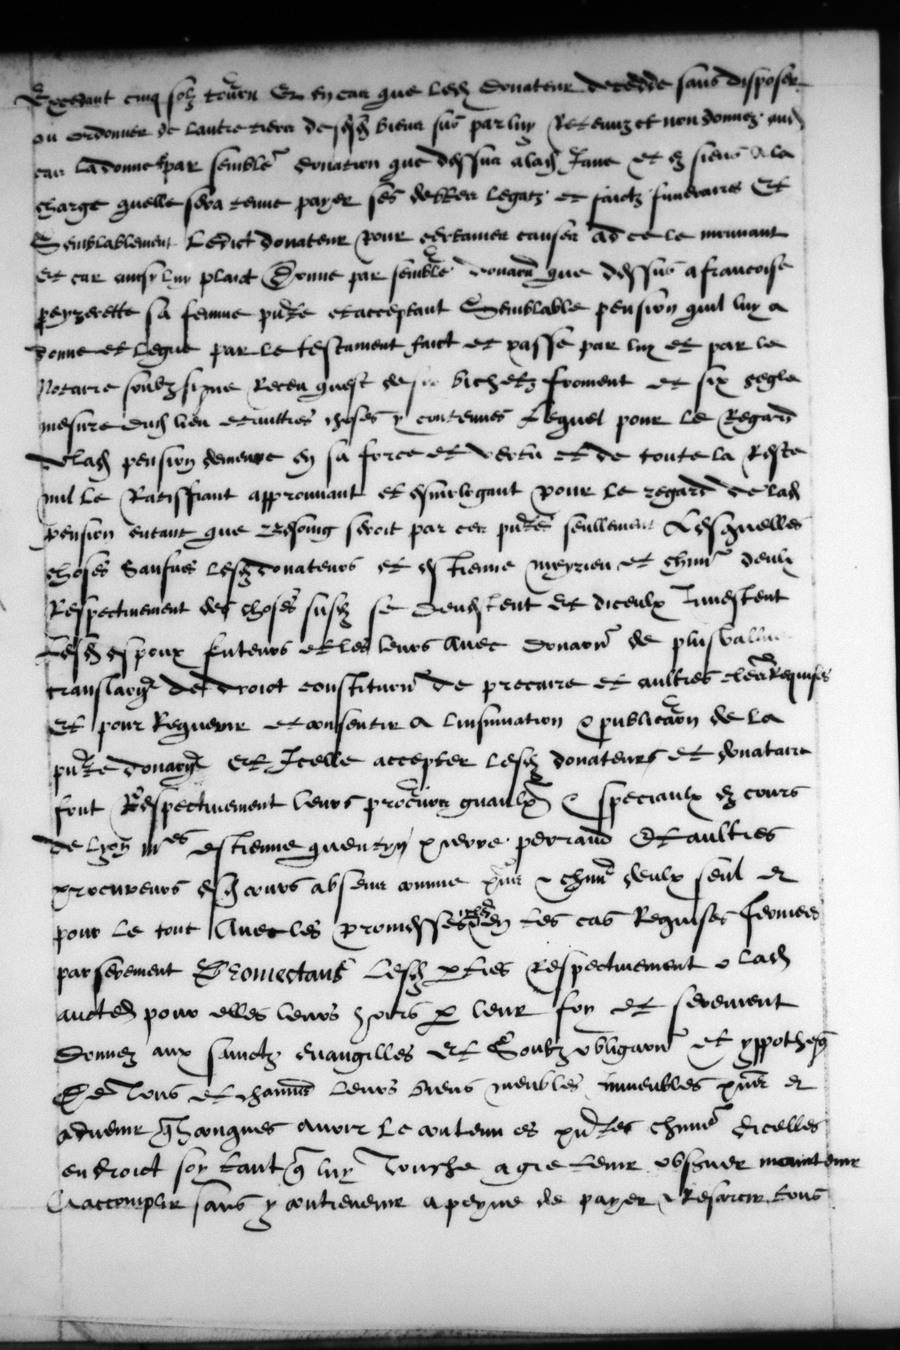 Excedant cinq solz tourn Et en cas que led donateur decedde sans disposer
ou ordonner de lautre tiers desd biens sus par luy Retenuz et non donnez aud
cas la donne par semble donation que dessus a lad Jane et es siens A la
charge quelle sera tenue payer ses debtes legatz et fraictz funeraires Et
Semblablement Ledict donateur pour certaines causes ad ce le mouvant
et car ainsy luy plaict Donne par semble donaon que dessus a francoise
peyzerette sa femme pnte et acceptant Semblable pension quil luy a
donne et legue par le testament faict et passe par luy et par le
Notaire soubzsigne Receu quest de six bichetz froment et six segle
mesure dud lieu et aultres choses y contenues Lequel pour le Regard
de lad pension demeure en sa force et vertu et de toute la Reste
nul le Ratiffiant approuvant et esmologant pour le regard de lad
pension entant que besoing seroit par ces pntes seullement Lesquelles
choses Saufves lesd donateurs et estienne meyzieu et chun deulx
Respectivement des choses susd se devestent et diceulx Investent
Lesd espoux futeurs et les leurs Avec donaon de plus vallue
translaon de droict constitution de precaire et aultres clers Requises
Et pour Requerir et consentir A linsinuation & publicaon de la
pnte donaon Et Icelle accepter lesd donateurs et donataire
font Respectivement leurs procureurs gnaulx & speciaulx es cours
de Lyon mes estienne quentyn pierre perraud Et aultres
procureurs esd cours absens comme pns & chun deulx seul et
pour le tout Avec les promesses en tes cas Requises fermees
par serement Promectans Lesd pties Respectivement & lad
aucted pour elles leurs hoirs p leur foy et serement
donnez aux sainctz evangilles et Soubz obligaon et yppotheq
De Tous et chascuns leurs biens meubles immeubles pns et
advenir qlzconques avoir le contenu es pntes chune dicelles
endroict soy tant q luy Touche a gre tenir observer maintenir
& accomplir sans y contrevenir a peyne de payer & Resarcir tous